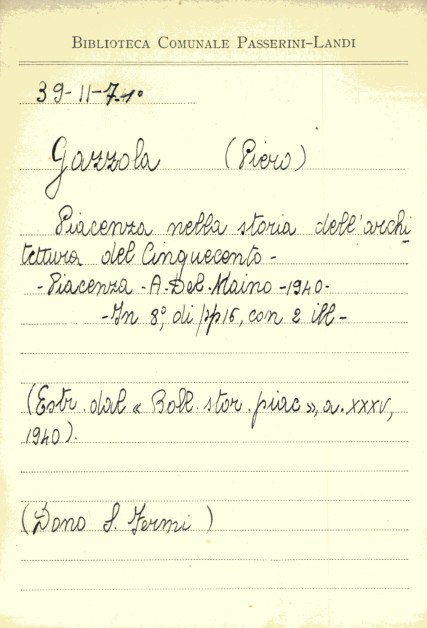 BIBLIOTECA COMUNALE PASSERINI-LANDI
39-11-7-1º
Gazzola (Piero)
Piacenza nella storia dell'archi
tettura del Cinquecento-
-Piacenza-A.Del Maino-1940-
-In 8º, di pp 16, con 2 ill-
(Estr. dal «Boll. stor. piac», a. XXXV,
1940).
(Dono S. Fermi)